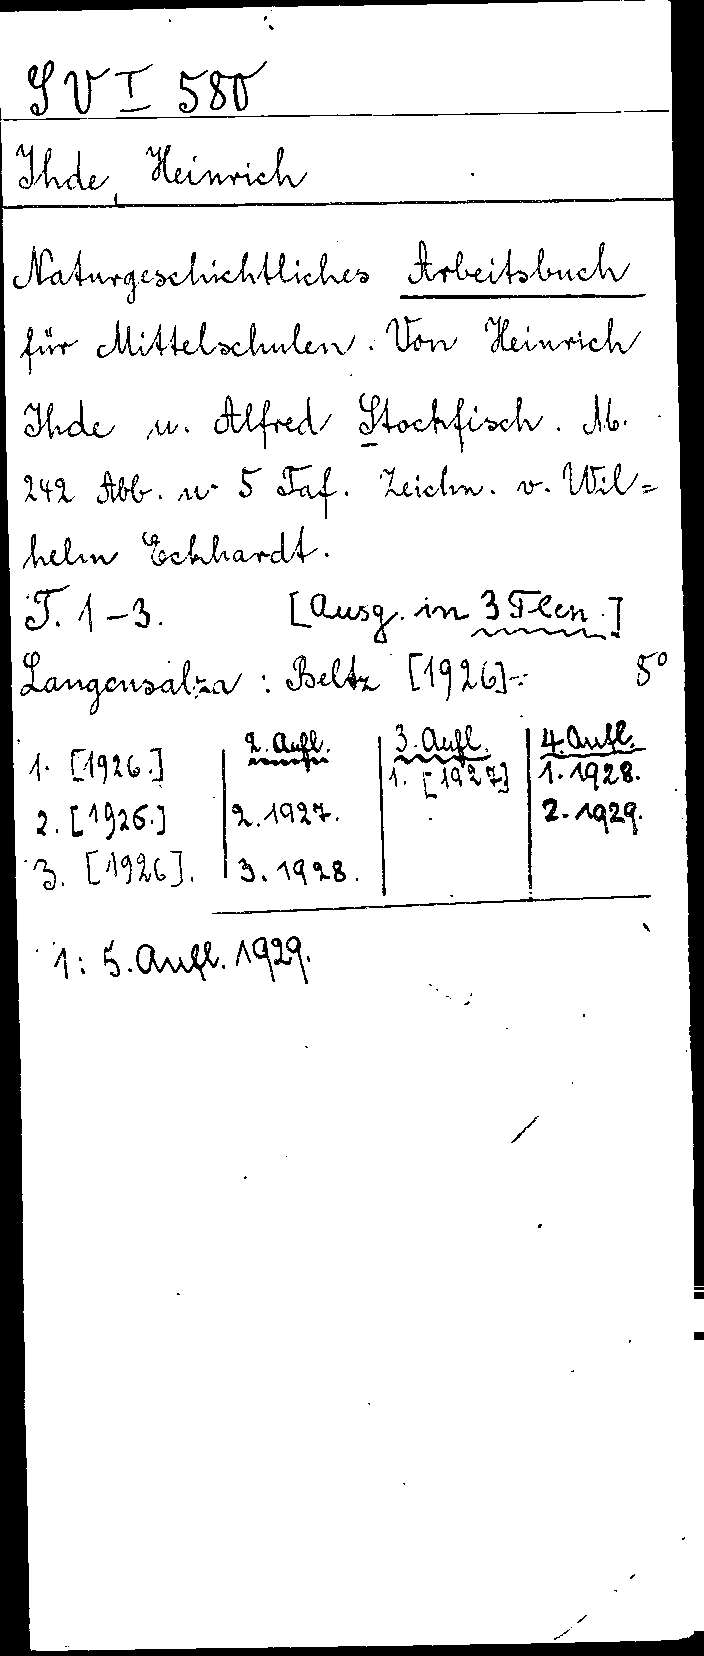 SV I 580
Ihde, Heinrich
Naturgeschichtliches Arbeitsbuch
für Mittelschulen. Von Heinrich
Ihde u. Alfred Stockfisch. M.
242 Abb. u. 5 Taf. Zeichn. v. Wil=
helm Eckhardt.
T. 1-3. [Ausg. in 3 Tlen.]
Langensalza: Beltz [1926]- 8°
2. Aufl. 3. Aufl. 4. Aufl.
1. [1926.] 1. [1927] 1. 1928.
2. [1926.] 2. 1927. 2. 1929.
3. [1926]. 3. 1928.
1: 5. Aufl. 1929.